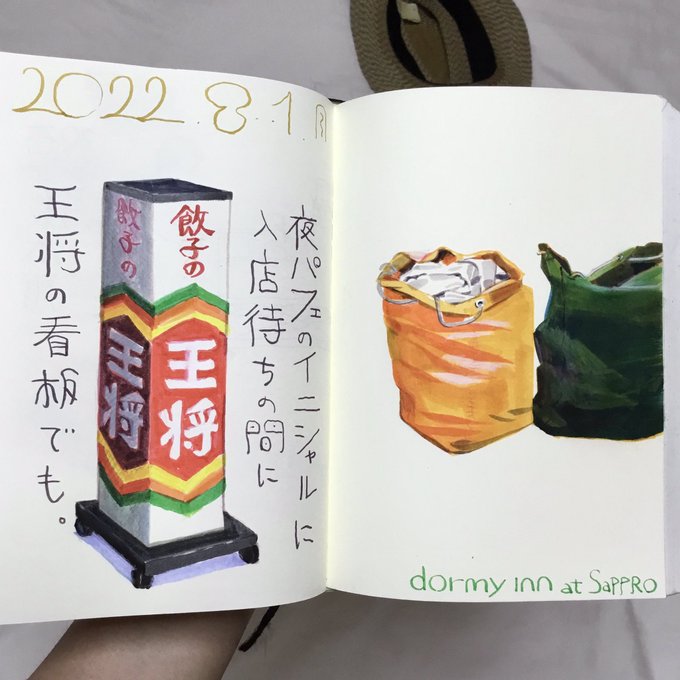 2022.8.1.月
夜パフェのイニシャルに
入店待ちの間に
王将の看板でも。
餃子の
王将
餃子の
王将
dormy inn at SAPPRO